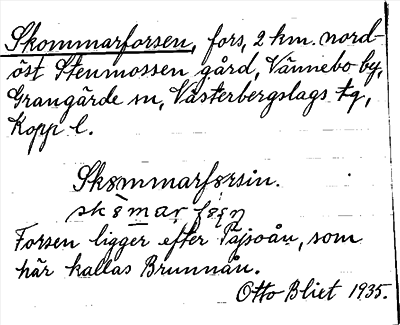 Skommarforsen, fors, 2 km. nord-
öst Stenmossen gård, Vännebo by,
Grangärde sn, Västerbergslags tg,
Kopp l.
Skommarforsin.
Forsen ligger efter Pajsoån, som
här kallas Brunnån.
Otto Blixt 1935.